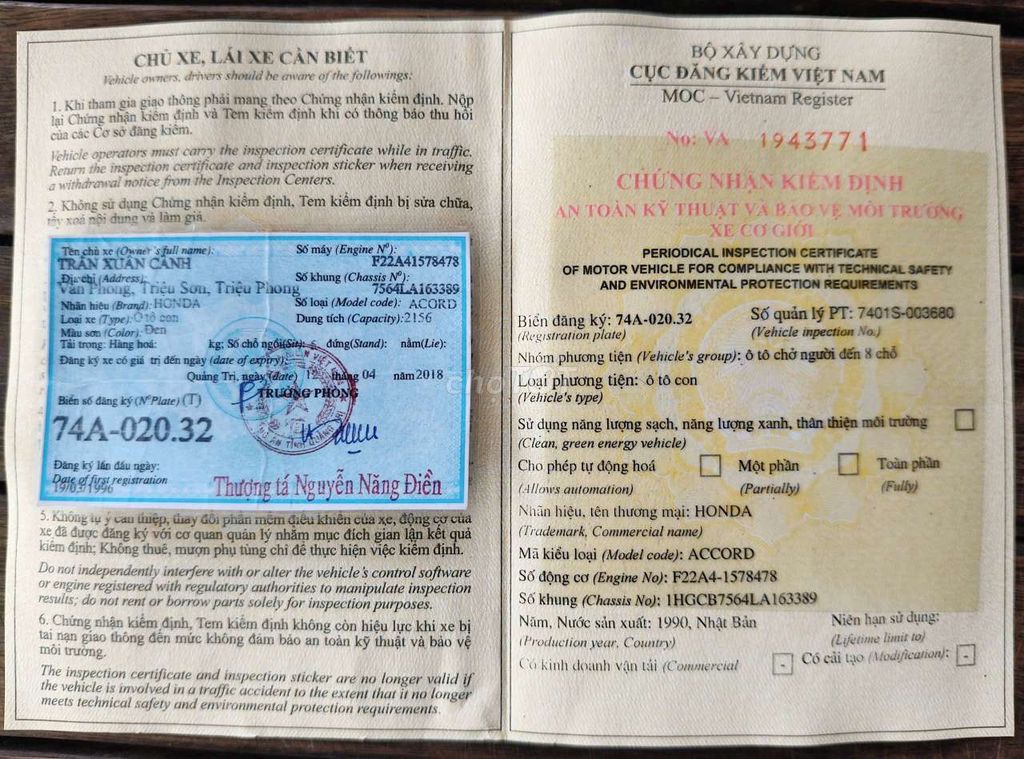 CHỦ XE, LÁI XE CẦN BIẾT
Vehicle owners, drivers should be aware of the followings:
1. Khi tham gia giao thông phải mang theo Chứng nhận kiểm định. Nộp
lại Chứng nhận kiểm định và Tem kiểm định khi có thông báo thu hồi
của các Cơ sở đăng kiểm.
Vehicle operators must carry the inspection certificate while in traffic.
Return the inspection certificate and inspection sticker when receiving
a withdrawal notice from the Inspection Centers.
2. Không sử dụng Chứng nhận kiểm định, Tem kiểm định bị sửa chữa,
tẩy xoá nội dung và làm giả.
Tên chủ xe (Owner's full name):
TRẦN XUÂN CẢNH
Địa chỉ (Address):
Vân Phong, Triệu Sơn, Triệu Phong
Nhãn hiệu (Brand): HONDA
Loại xe (Type): Ô tô con
Màu sơn (Color): Đen
Số máy (Engine Nº):
F22A41578478
Số khung (Chassis Nº):
7564LA163389
Số loại (Model code): ACORD
Dung tích (Capacity): 2156
Tải trọng: Hàng hoá: kg; Số chỗ ngồi(Sit): đứng(Stand): nằm(Lie):
Đăng ký xe có giá trị đến ngày (date of expiry):
Quảng Trị, ngày (date) 12 tháng 04 năm 2018
TRƯỞNG PHÒNG
Biển số đăng ký (NºPlate) (T)
74A-020.32
Đăng ký lần đầu ngày:
Date of first registration
19/03/1996
Thượng tá Nguyễn Năng Điền
5. Không tự ý can thiệp, thay đổi phần mềm điều khiển của xe, động cơ của
xe đã được đăng ký với cơ quan quản lý nhằm mục đích gian lận kết quả
kiểm định; Không thuê, mượn phụ tùng chỉ để thực hiện việc kiểm định.
Do not independently interfere with or alter the vehicle's control software
or engine registered with regulatory authorities to manipulate inspection
results; do not rent or borrow parts solely for inspection purposes.
6. Chứng nhận kiểm định, Tem kiểm định không còn hiệu lực khi xe bị
tai nạn giao thông đến mức không đảm bảo an toàn kỹ thuật và bảo vệ
môi trường.
The inspection certificate and inspection sticker are no longer valid if
the vehicle is involved in a traffic accident to the extent that it no longer
meets technical safety and environmental protection requirements.
BỘ XÂY DỰNG
CỤC ĐĂNG KIỂM VIỆT NAM
MOC – Vietnam Register
No: VA 1943771
CHỨNG NHẬN KIỂM ĐỊNH
AN TOÀN KỸ THUẬT VÀ BẢO VỆ MÔI TRƯỜNG
XE CƠ GIỚI
PERIODICAL INSPECTION CERTIFICATE
OF MOTOR VEHICLE FOR COMPLIANCE WITH TECHNICAL SAFETY
AND ENVIRONMENTAL PROTECTION REQUIREMENTS
Biển đăng ký: 74A-020.32 Số quản lý PT: 7401S-003680
(Registration plate) (Vehicle inspection No.)
Nhóm phương tiện (Vehicle's group): ô tô chở người đến 8 chỗ
Loại phương tiện: ô tô con
(Vehicle's type)
Sử dụng năng lượng sạch, năng lượng xanh, thân thiện môi trường
(Clean, green energy vehicle)
Cho phép tự động hoá Một phần Toàn phần
(Allows automation) (Partially) (Fully)
Nhãn hiệu, tên thương mại: HONDA
(Trademark, Commercial name)
Mã kiểu loại (Model code): ACCORD
Số động cơ (Engine No): F22A4-1578478
Số khung (Chassis No): 1HGCB7564LA163389
Năm, Nước sản xuất: 1990, Nhật Bản Niên hạn sử dụng:
(Production year, Country) (Lifetime limit to)
Có kinh doanh vận tải (Commercial - Có cải tạo (Modification): -